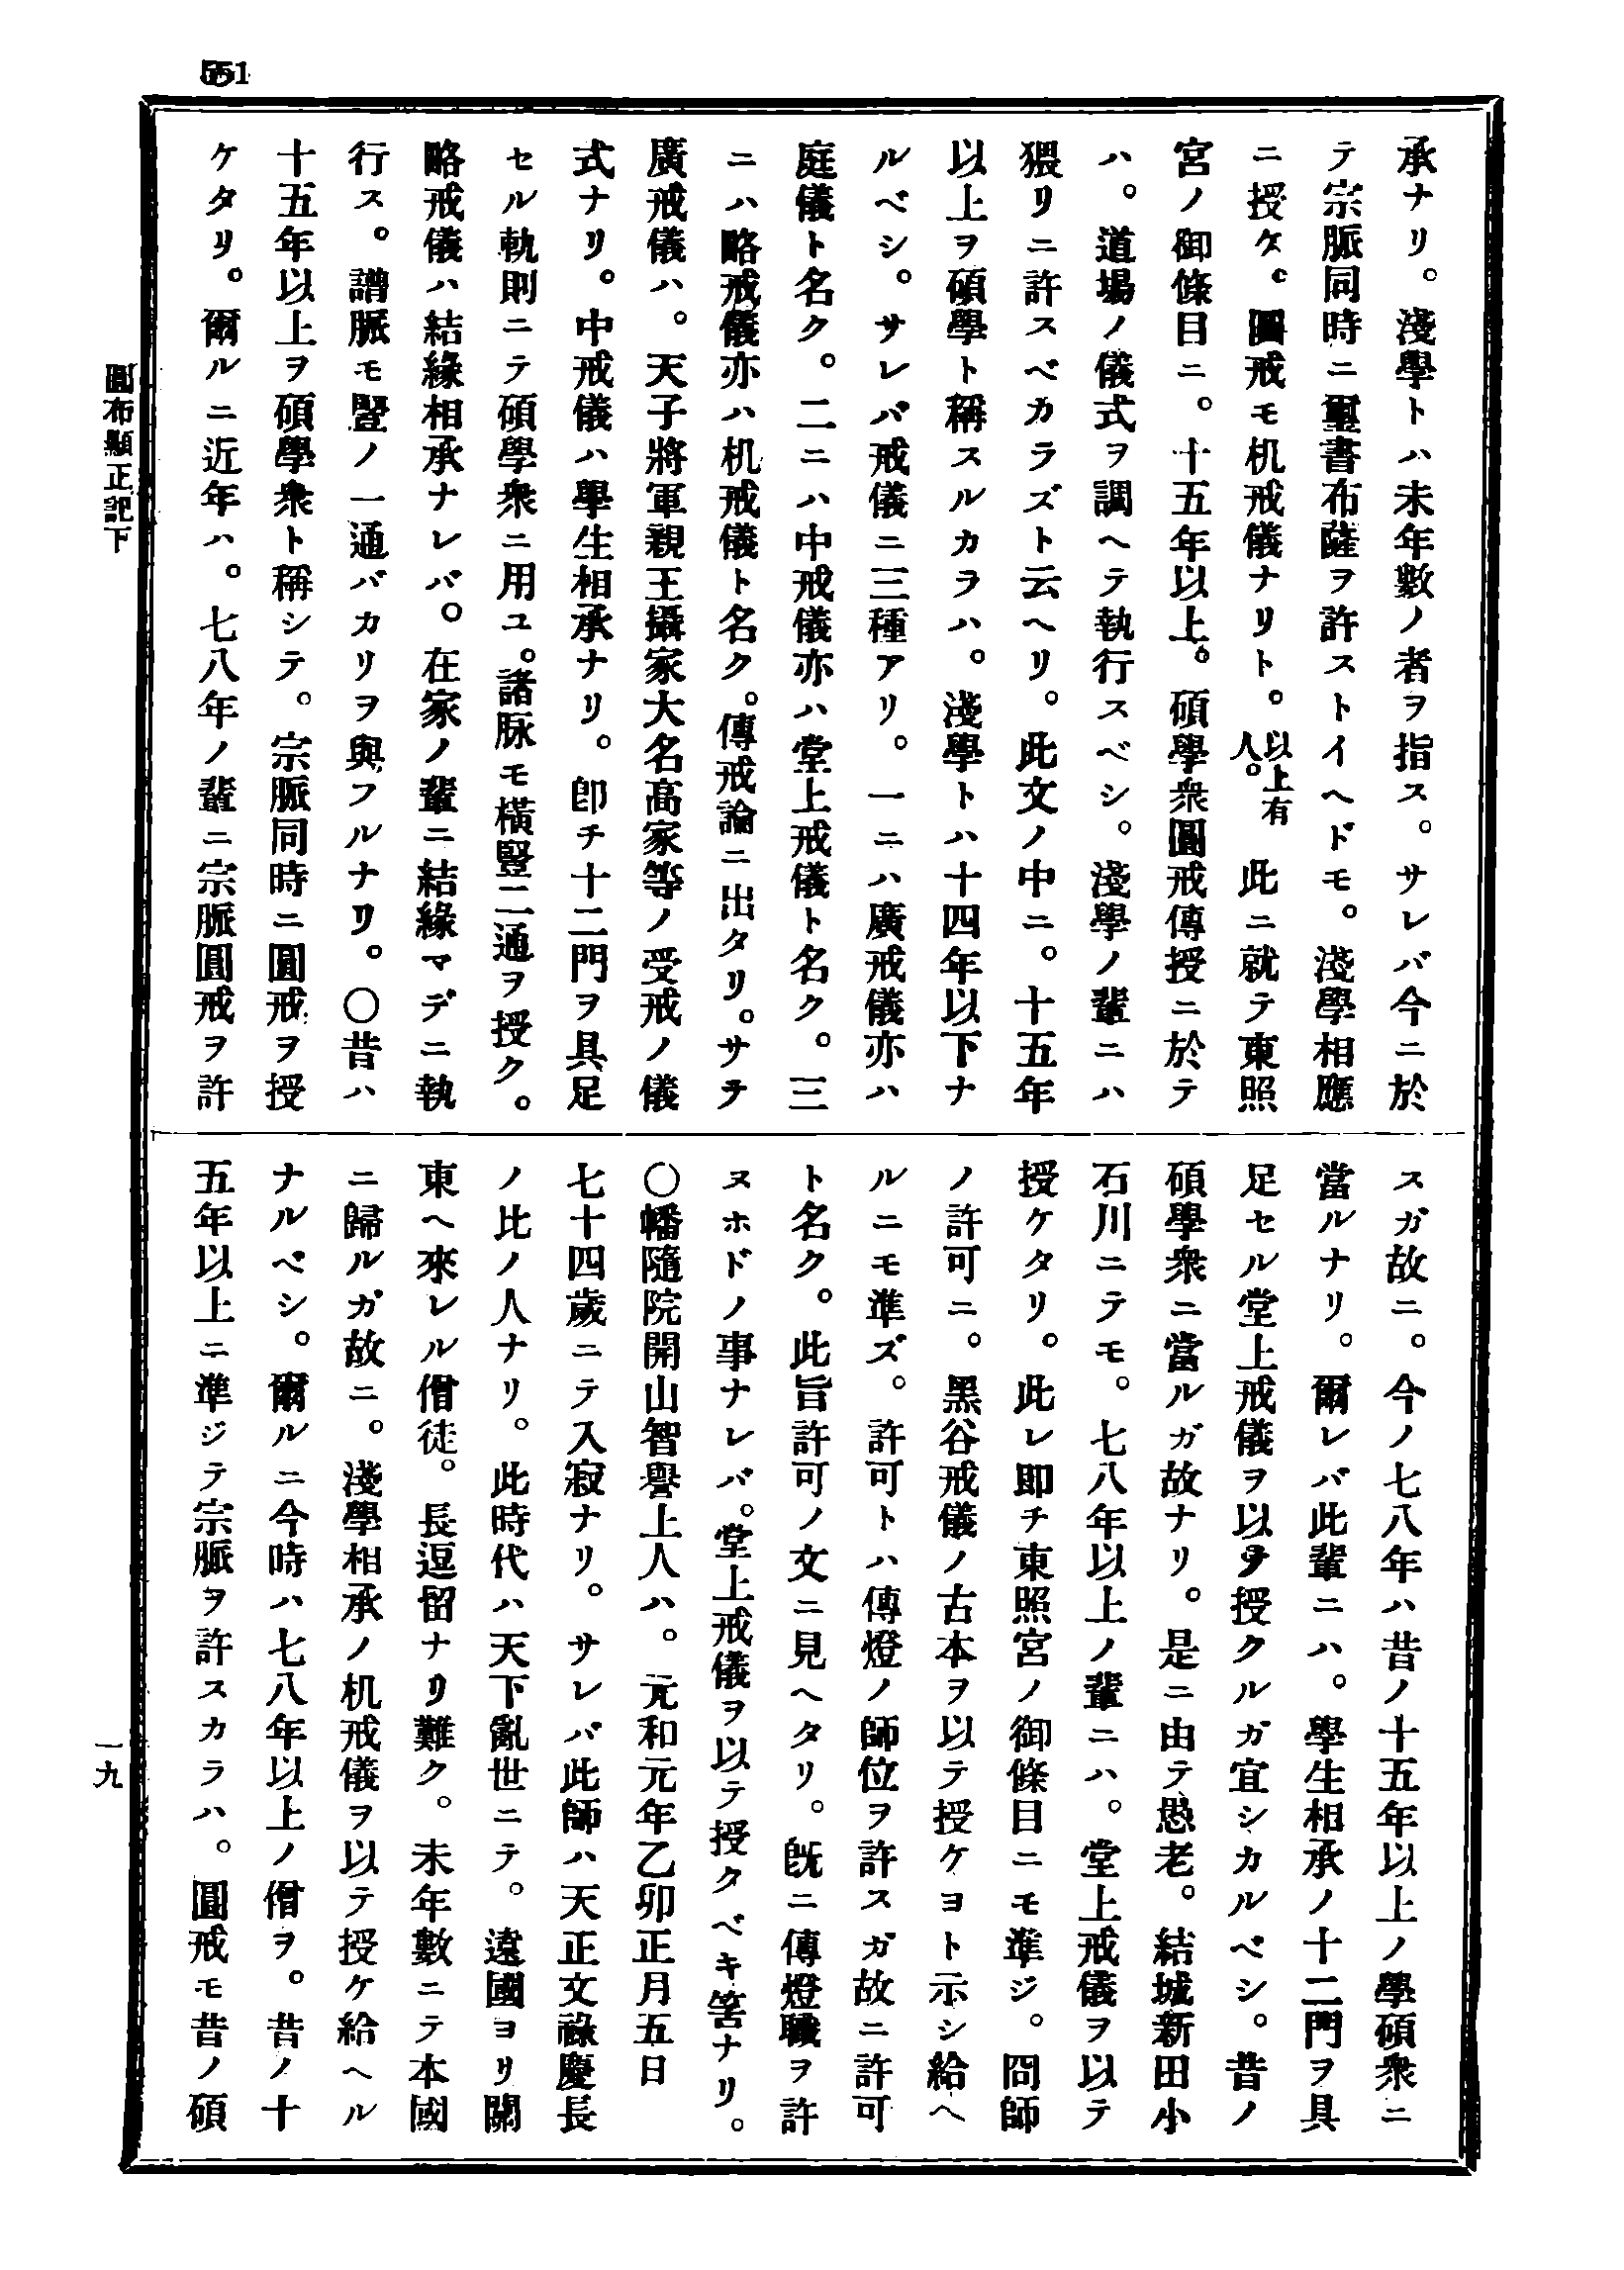 551
承ナリ。淺學トハ未年數ノ者ヲ指ス。サレバ今ニ於
テ宗脈同時ニ璽書布薩ヲ許ストイヘドモ。淺學相應
ニ授ケ。圓戒モ机戒儀ナリト。以上有人。此ニ就テ東照
宮ノ御條目ニ。十五年以上。碩學衆圓戒傳授ニ於テ
ハ。道場ノ儀式ヲ調ヘテ執行スベシ。淺學ノ輩ニハ
猥リニ許スベカラズト云ヘリ。此文ノ中ニ。十五年
以上ヲ碩學ト稱スルカラハ。淺學トハ十四年以下ナ
ルベシ。サレバ戒儀ニ三種アリ。一ニハ廣戒儀亦ハ
庭儀ト名ク。二ニハ中戒儀亦ハ堂上戒儀ト名ク。三
ニハ略戒儀亦ハ机戒儀ト名ク。傳戒論ニ出タリ。サテ
廣戒儀ハ。天子將軍親王攝家大名高家等ノ受戒ノ儀
式ナリ。中戒儀ハ學生相承ナリ。卽チ十二門ヲ具足
セル軌則ニテ碩學衆ニ用ユ。諸脉モ橫豎二通ヲ授ク。
略戒儀ハ結緣相承ナレバ。在家ノ輩ニ結緣マデニ執
行ス。譜脈モ豎ノ一通バカリヲ與フルナリ。〇昔ハ
十五年以上ヲ碩學衆ト稱シテ。宗脈同時ニ圓戒ヲ授
ケタリ。爾ルニ近年ハ。七八年ノ輩ニ宗脈圓戒ヲ許
スガ故ニ。今ノ七八年ハ昔ノ十五年以上ノ學碩衆ニ
當ルナリ。爾レバ此輩ニハ。學生相承ノ十二門ヲ具
足セル堂上戒儀ヲ以テ授クルガ宜シカルベシ。昔ノ
碩學衆ニ當ルガ故ナリ。是ニ由テ愚老。結城新田小
石川ニテモ。七八年以上ノ輩ニハ。堂上戒儀ヲ以テ
授ケタリ。此レ即チ東照宮ノ御條目ニモ準ジ。冏師
ノ許可ニ。黑谷戒儀ノ古本ヲ以テ授ケヨト示シ給ヘ
ルニモ準ズ。許可トハ傳燈ノ師位ヲ許スガ故ニ許可
ト名ク。此旨許可ノ文ニ見ヘタリ。旣ニ傳燈職ヲ許
ヌホドノ事ナレバ。堂上戒儀ヲ以テ授クベキ筈ナリ。
〇幡隨院開山智譽上人ハ。元和元年乙卯正月五日
七十四歲ニテ入寂ナリ。サレバ此師ハ天正文祿慶長
ノ比ノ人ナリ。此時代ハ天下亂世ニテ。遠國ヨリ關
東ヘ來レル僧徒。長逗留ナリ難ク。未年數ニテ本國
ニ歸ルガ故ニ。淺學相承ノ机戒儀ヲ以テ授ケ給ヘル
ナルベシ。爾ルニ今時ハ七八年以上ノ僧ヲ。昔ノ十
五年以上ニ準ジテ宗脈ヲ許スカラハ。圓戒モ昔ノ碩
圓布顯正記下
一九